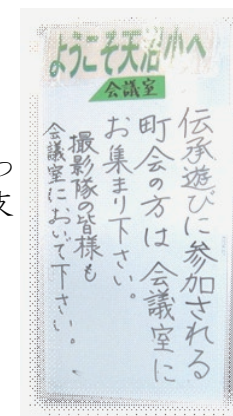 ようこそ天沼小へ
会議室
伝承遊びに参加される
町会の方は会議室に
お集まり下さい。
撮影隊の皆様も
会議室においで下さい。